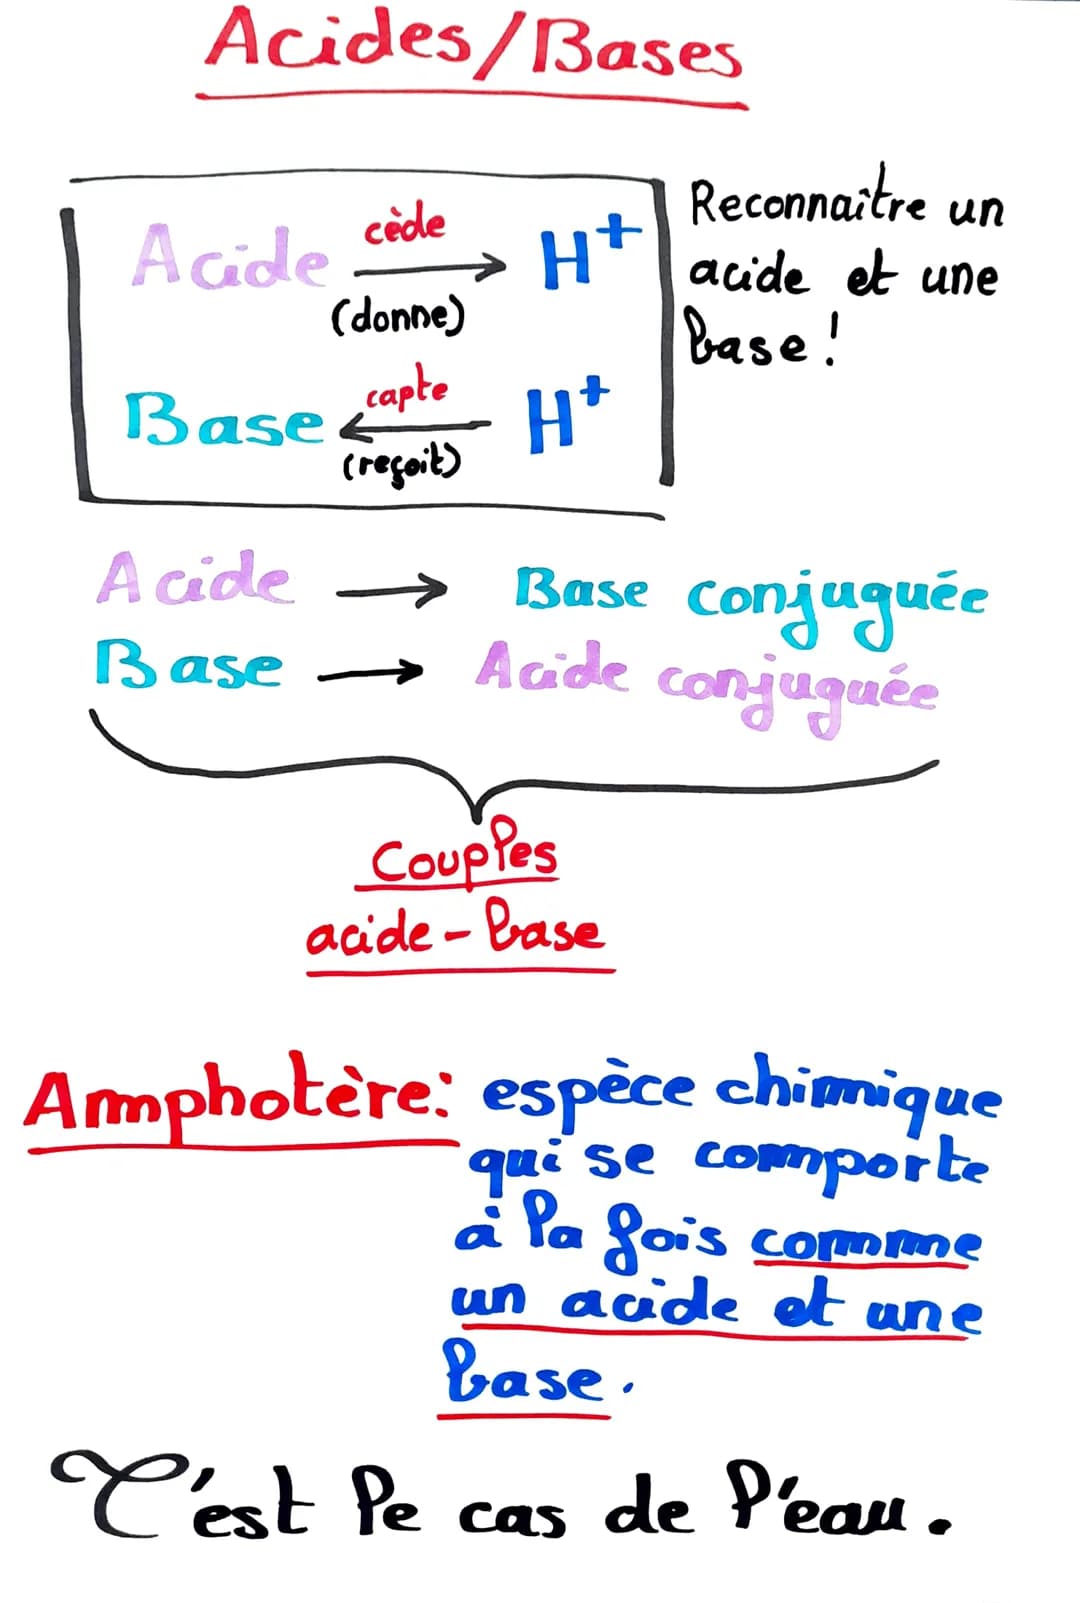 Acides/Bases
Acide cède (donne) → H⁺
Base capte (reçoit) ← H⁺
Reconnaître un
acide et une
base !
Acide → Base conjuguée
Base → Acide conjuguée
Couples
acide - base
Amphotère: espèce chimique
qui se comporte
à la fois comme
un acide et une
base.
C'est le cas de l'eau.